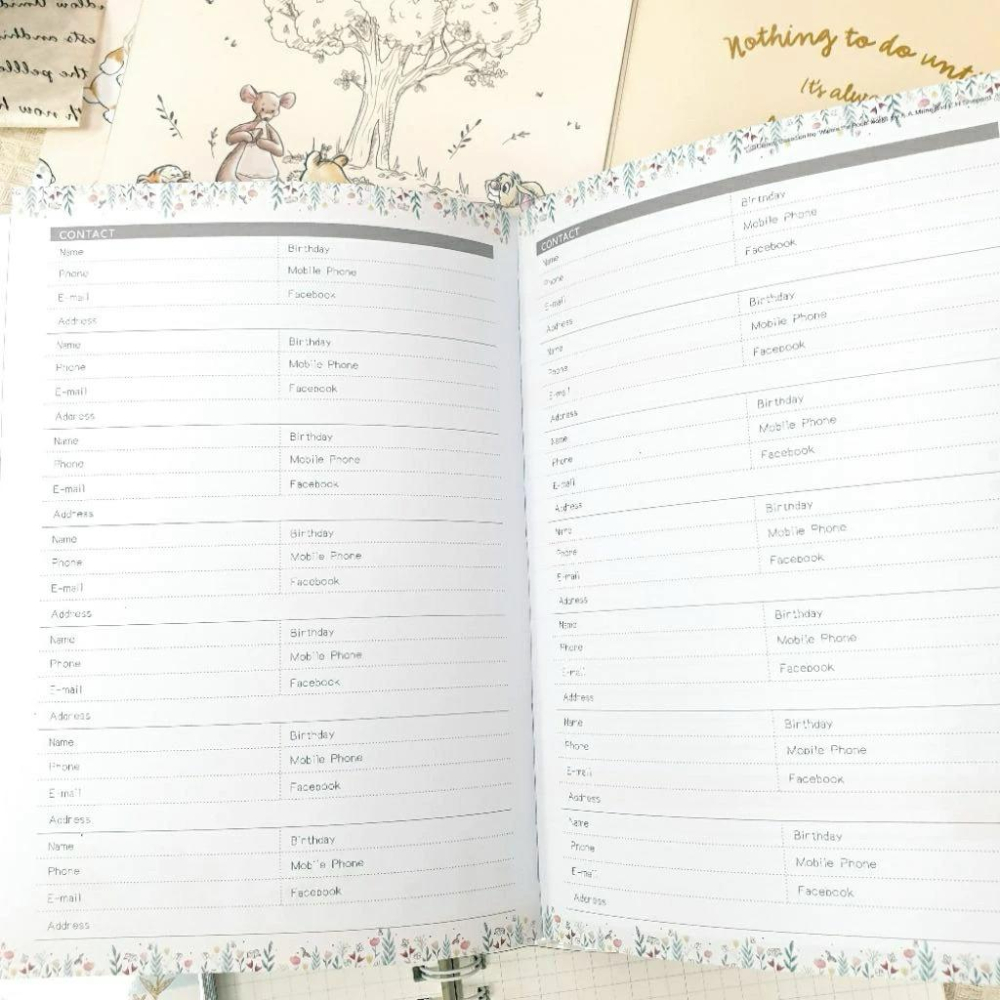 Nothing to do unt
It's alw
the
CONTACT
Name Birthday
Phone Mobile Phone
E-mail Facebook
Address
Name Birthday
Phone Mobile Phone
E-mail Facebook
Address
Name Birthday
Phone Mobile Phone
E-mail Facebook
Address
Name Birthday
Phone Mobile Phone
E-mail Facebook
Address
Name Birthday
Phone Mobile Phone
E-mail Facebook
Address
Name Birthday
Phone Mobile Phone
E-mail Facebook
Address
Name Birthday
Phone Mobile Phone
E-mail Facebook
Address
CONTACT
Name Birthday
Phone Mobile Phone
E-mail Facebook
Address
Name Birthday
Phone Mobile Phone
E-mail Facebook
Address
Name Birthday
Phone Mobile Phone
E-mail Facebook
Address
Name Birthday
Phone Mobile Phone
E-mail Facebook
Address
Name Birthday
Phone Mobile Phone
E-mail Facebook
Address
Name Birthday
Phone Mobile Phone
E-mail Facebook
Address
Name Birthday
Phone Mobile Phone
E-mail Facebook
Address